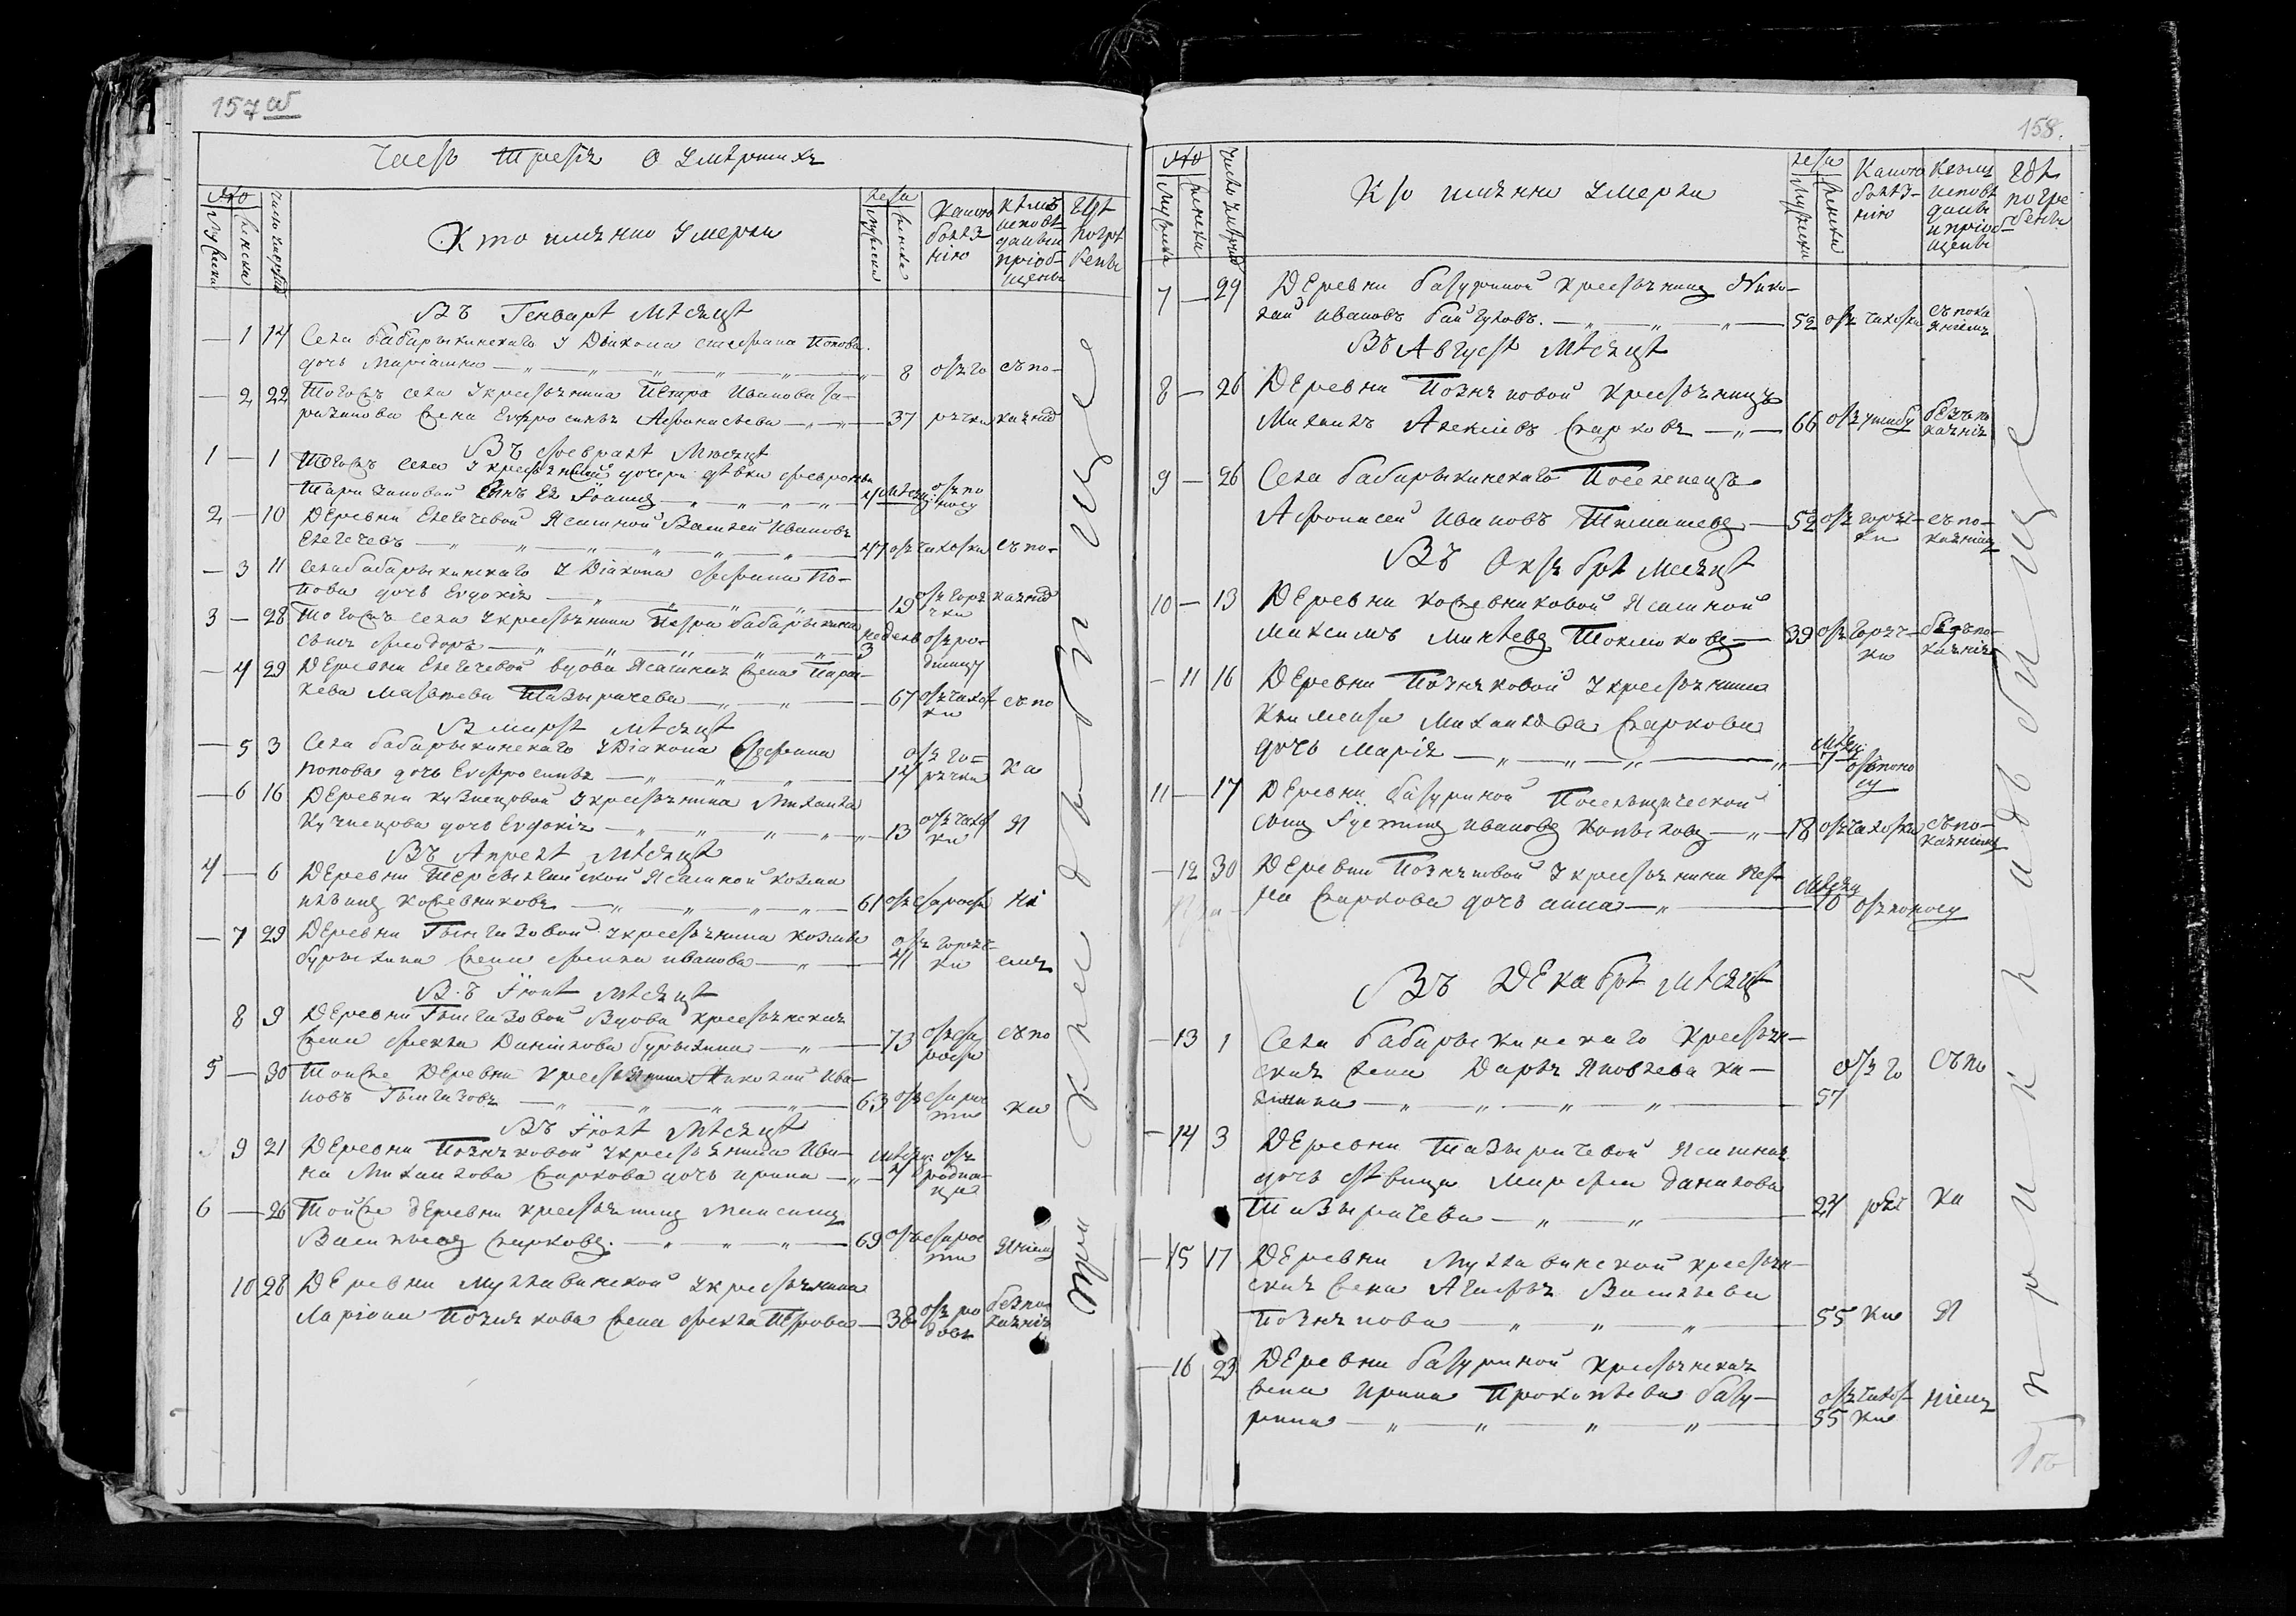 157 об
Часть третія О Умѣршихъ
№
Мужеска
Женска
Число умертвій
Кто имянно Умерли
лета
Мужеска
Женска
Какою болѣзнію
Кѣмъ исповѣданы и пріобщены
Где погребены
Въ Генварѣ Мѣсяцѣ
1 14 Села бабарыкинскаго У Діакона стефана Попова
дочь Маріамна 8 отъ го съ по-
2 22 Тогожъ села Укрестьянина Петра Иванова
жена Еѵфросинья Афонасьева 37 рячки каянію
Въ февралѣ Месяцѣ
1 1 Тогожъ села У дочери дѣвки февроньи
сынъ Ея Іоаннъ 4 мѣсяц: отъ поносу
2 10 Деревни Елегечевой Ясашной Василей Ивановъ
Елегечевъ 47 отъ чахотки съ по-
3 11 Села бабарыкинскаго У Діакона стефана По-
пова дочь Евдокія 19 отъ горячки каянію
3 28 Тогожъ села Укрестьянина Петра бабарыкина
сынъ феодоръ 3 недель отъ родимцу
4 29 Деревни Елегечевой вдова Ясашная жена Парас-
кева Матвеева Тазырачева 67 отъ чахотки съ по
В мартѣ мѣсяцѣ
5 3 Села бабарыкинскаго У Діакона Стефана
попова дочь Евфросинья 14 отъ горячки ка
6 16 Деревни Кузнецовой Укрестьянина Михаила
Кузнецова дочь Евдокія 13 отъ чахотки Я
Въ Апрелѣ Мѣсяцѣ
4 6 Деревни Ясашной Козма
Кожевниковъ 61 отъ старости ні
7 29 Деревни Укрестьянина Козмы
бурыхина жена фекла иванова 41 отъ горячки емъ
Въ Іюнѣ Мѣсяцѣ
8 9 Деревни Вдова крестьянская
жена фекла Данилова бурыхина 73 отъ старости съ по
5 30 Тойже Деревни Крестьянинъ Николай Ива-
новъ 63 отъ старости ка
Въ Іюлѣ Мѣсяцѣ
9 21 Деревни Позняковой Укрестьянина Ива-
на Михаилова Жаркова дочь ирина 4 мѣсяц: отъ родимца
6 26 Тойже деревни крестьянинъ Максимъ
Васильевъ Жарковъ. 69 отъ старости Яніемъ
10 28 Деревни Муллавинской Укрестьянина
Ларіона Познякова жена фекла Петрова 38 отъ родовъ без покаянія
При кладбищѣ
158.
№
Мужеска
Женска
Число умертвій
Кто имянно Умерли
лета
Мужеска
Женска
Какою болѣзнію
Кѣмъ исповѣданы и пріобщены
где погребены
7 29 Деревни батуриной Крестьянинъ Нико-
лай Ивановъ 52 отъ чахотки съ покаяніемъ
Въ Августѣ Мѣсяцѣ
8 26 Деревни Позняковой Крестьянинъ
Михаилъ Алексѣевъ Жарковъ 66 отъ ушибу безъ покаянія
9 26 Села бабарыкинскаго Поселенецъ
Афонасей Ивановъ 52 отъ горячки съ покаяніемъ
Въ Октябрѣ Месяцѣ
10 13 Деревни Кожевниковой Ясашной
Максимъ Токмаковъ 39 отъ горячки безъ покаянія
11 16 Деревни Позняковой Укрестьянина
Климента Михаилова Жаркова
дочь Марія мѣсяц: 7 отъ поносу
11 17 Деревни батуриной Поселыцической
сынъ Іустинъ Ивановъ Копыловъ 18 отъ чахотки съ покаяніемъ
12 30 Деревни Позняковой Укрестьянина Пет-
ра Жаркова дочь анна мѣсяц 10 отъ поносу
Въ Декабрѣ Мѣсяцѣ
13 1 Села бабарыкинскаго Крестьян-
ская жена Дарья Яковлева
57 отъ го съ по
14 3 Деревни Тазырачевой Ясашная
дочь дѣвица Марфа Данилова
Тазырачева 24 ряч ка
15 17 Деревни Муллавинской крестьян-
ская жена Агафья Васильева
Познякова 55 ки Я
16 23 Деревни батуриной Крестьянская
жена Ирина Прокопьева бату-
рина 35 отъ чахотки ніемъ
При кладбищѣ